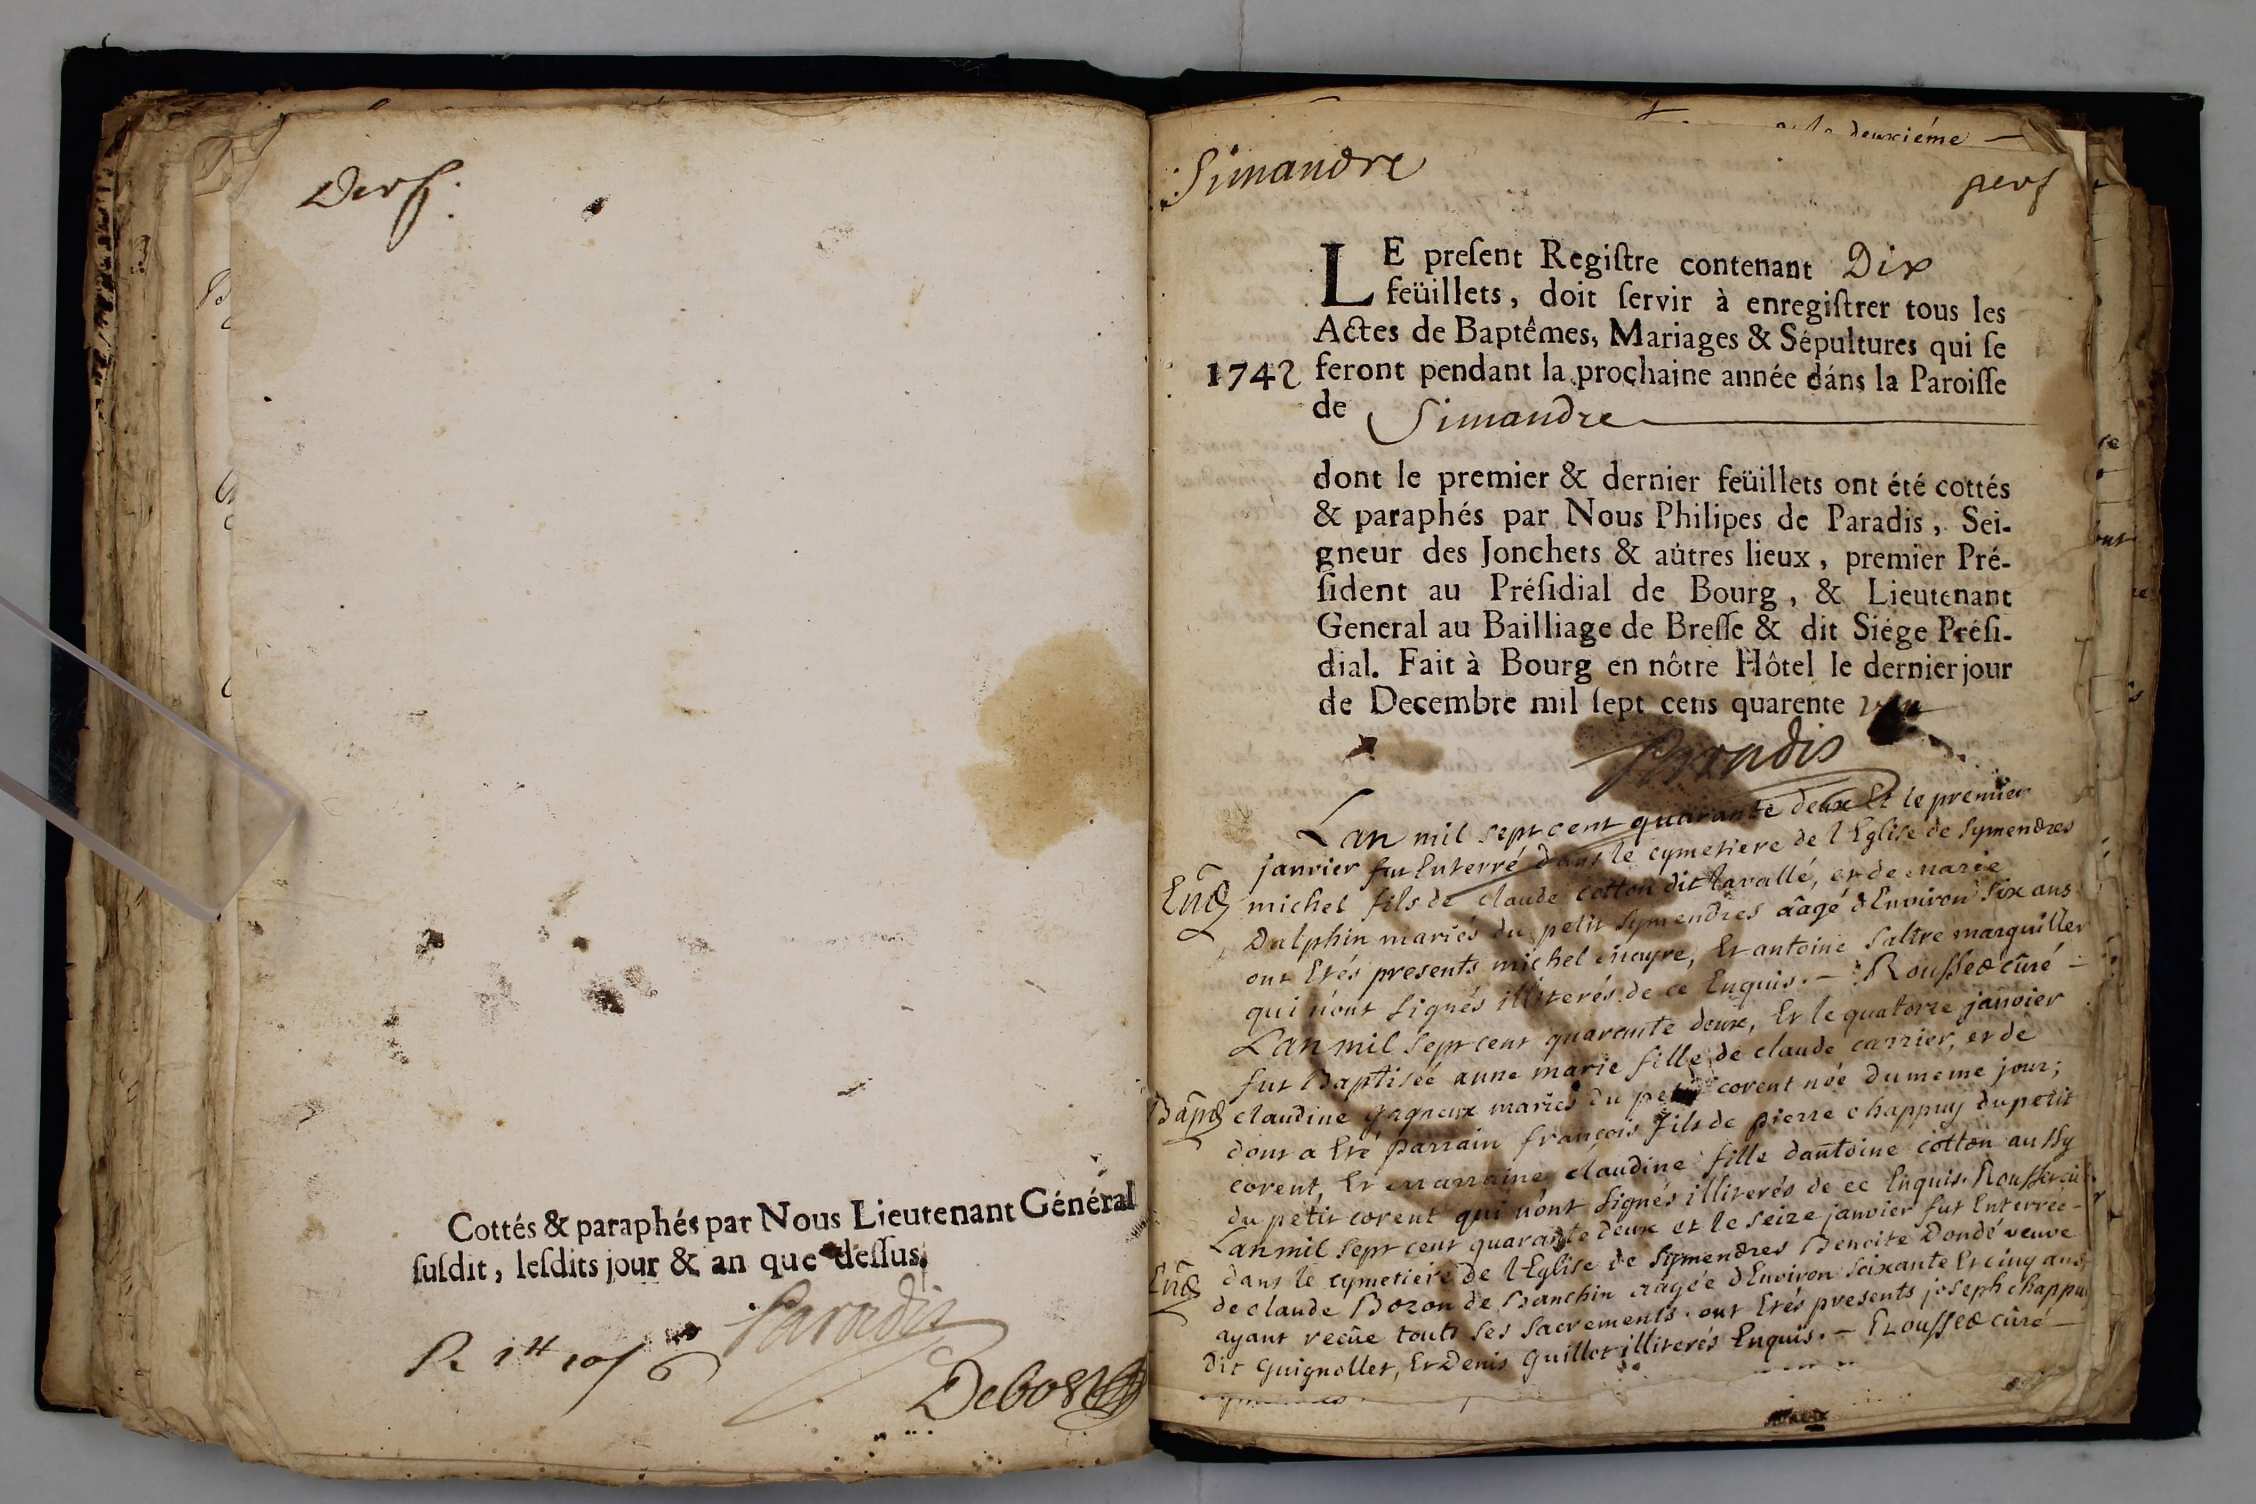 Cottés & paraphés par Nous Lieutenant Général
susdit, lesdits jour & an que dessus.
Paradis
Debost
deuxiéme
Simandre
LE present Registre contenant Dix
feüillets, doit servir à enregistrer tous les
Actes de Baptêmes, Mariages & Sépultures qui se
1742 feront pendant la prochaine année dáns la Paroisse
de Simandre
dont le premier & dernier feüillets ont été cottés
& paraphés par Nous Philipes de Paradis, Sei-
gneur des Jonchets & aûtres lieux, premier Pré-
sident au Présidial de Bourg, & Lieutenant
General au Bailliage de Bresse & dit Siége Prési-
dial. Fait à Bourg en nôtre Hôtel le dernier jour
de Decembre mil sept cens quarente un
Paradis
Lan mil sept cent quarante deux Et le premier
janvier fut Enterré dans le cymetiere de l'Eglise de Symendres
michel fils de claude cotton dit lavallé, et de marie
Dalphin mariés du petit Symendres aâgé dEnviron six ans
ont Etés presents michel mayre, Et antoine saltre marguiller
qui n'ont signés illiterés de ce Enquis. — Roussed cûré —
Lan mil sept cent quarante deux, Et le quatorze janvier
fut Baptisée anne marie fille de claude carrier, et de
claudine gagneux mariés du petit corent née du meme jour;
dont a Eté parrain françois fils de pierre chappuy du petit
corent, Et marraine claudine fille dantoine cotton aussy
du petit corent qui n'ont signés illiterés de ce Enquis.
Lan mil sept cent quarante deux et le seize janvier fut Enterrée
dans le cymetiere de l'Eglise de Symendres Benoite Dondé veuve
de claude Bozon de Banchin aagée dEnviron soixante Et cinq ans
ayant reçûe touts ses sacrements. ont Etés presents joseph chappuy
dit guignollet, Et Denis guillot illiterés Enquis. — Roussed cûré —